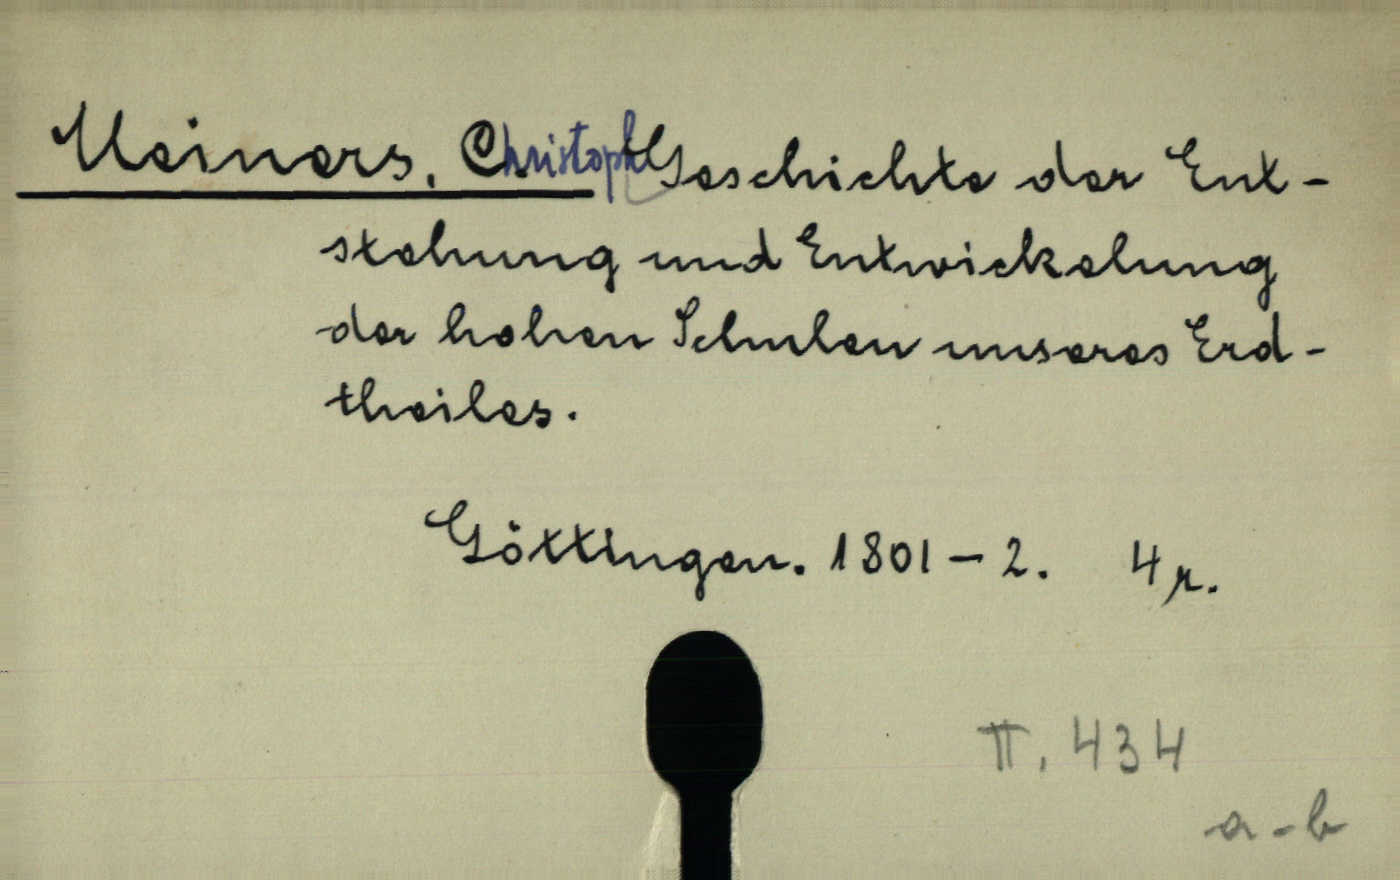 Meiners, Christoph Geschichte der Ent-
stehung und Entwickelung
der hohen Schulen unseres Erd-
theiles.
Göttingen. 1801-2. 4 r.
II. 434
a-b